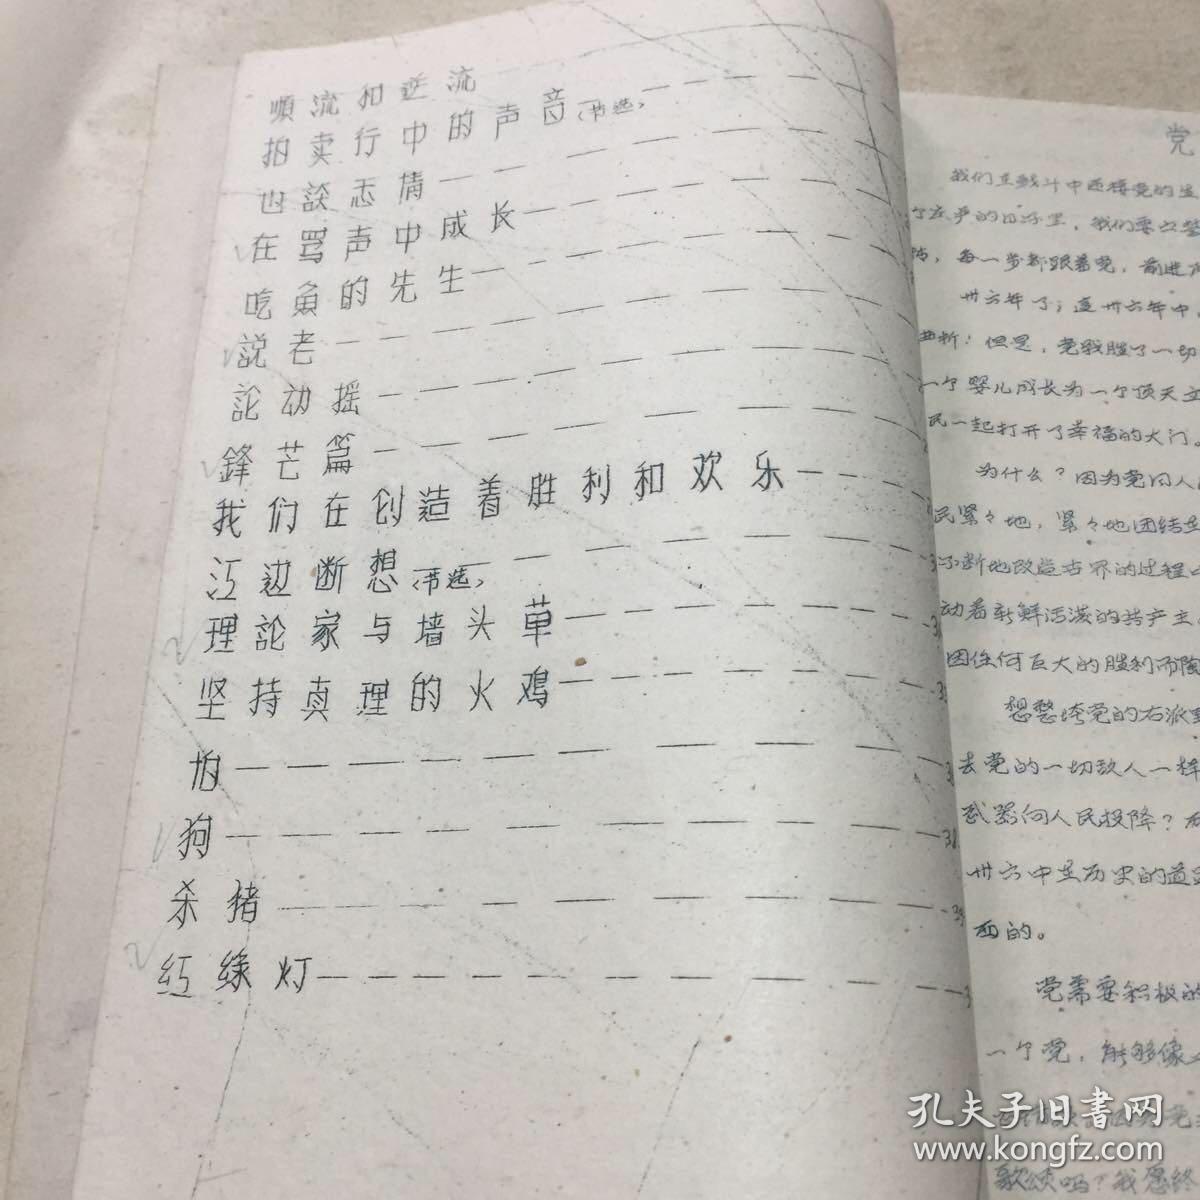 順流和逆流
拍卖行中的声音(节选)
也談恋情
在骂声中成长
吃魚的先生
説老
論动摇
鋒芒篇
我们在创造着胜利和欢乐
江边断想(节选)
理論家与墙头草
坚持真理的火鸡
怕
狗
杀猪
紅緑灯
党
我们在战斗中迎接党的生
个庄严的日子里，我们要
每一步都跟着党，前进
卅六年了；这卅六年中，
曲折！但是，党战胜了一切
一个婴儿成长为一个顶天立
民一起打开了幸福的大门。
为什么？因为党同人
民紧々地，紧々地团结在
不断地改造世界的过程中
动着新鲜活泼的共产主
因任何巨大的胜利而陶
想整垮党的右派
去党的一切敌人一样
武器向人民投降？
卅六年在历史的道
西的。
党需要积极的
一个党，能够像
歌颂吗？我愿终
孔夫子旧書网
www.kongfz.com